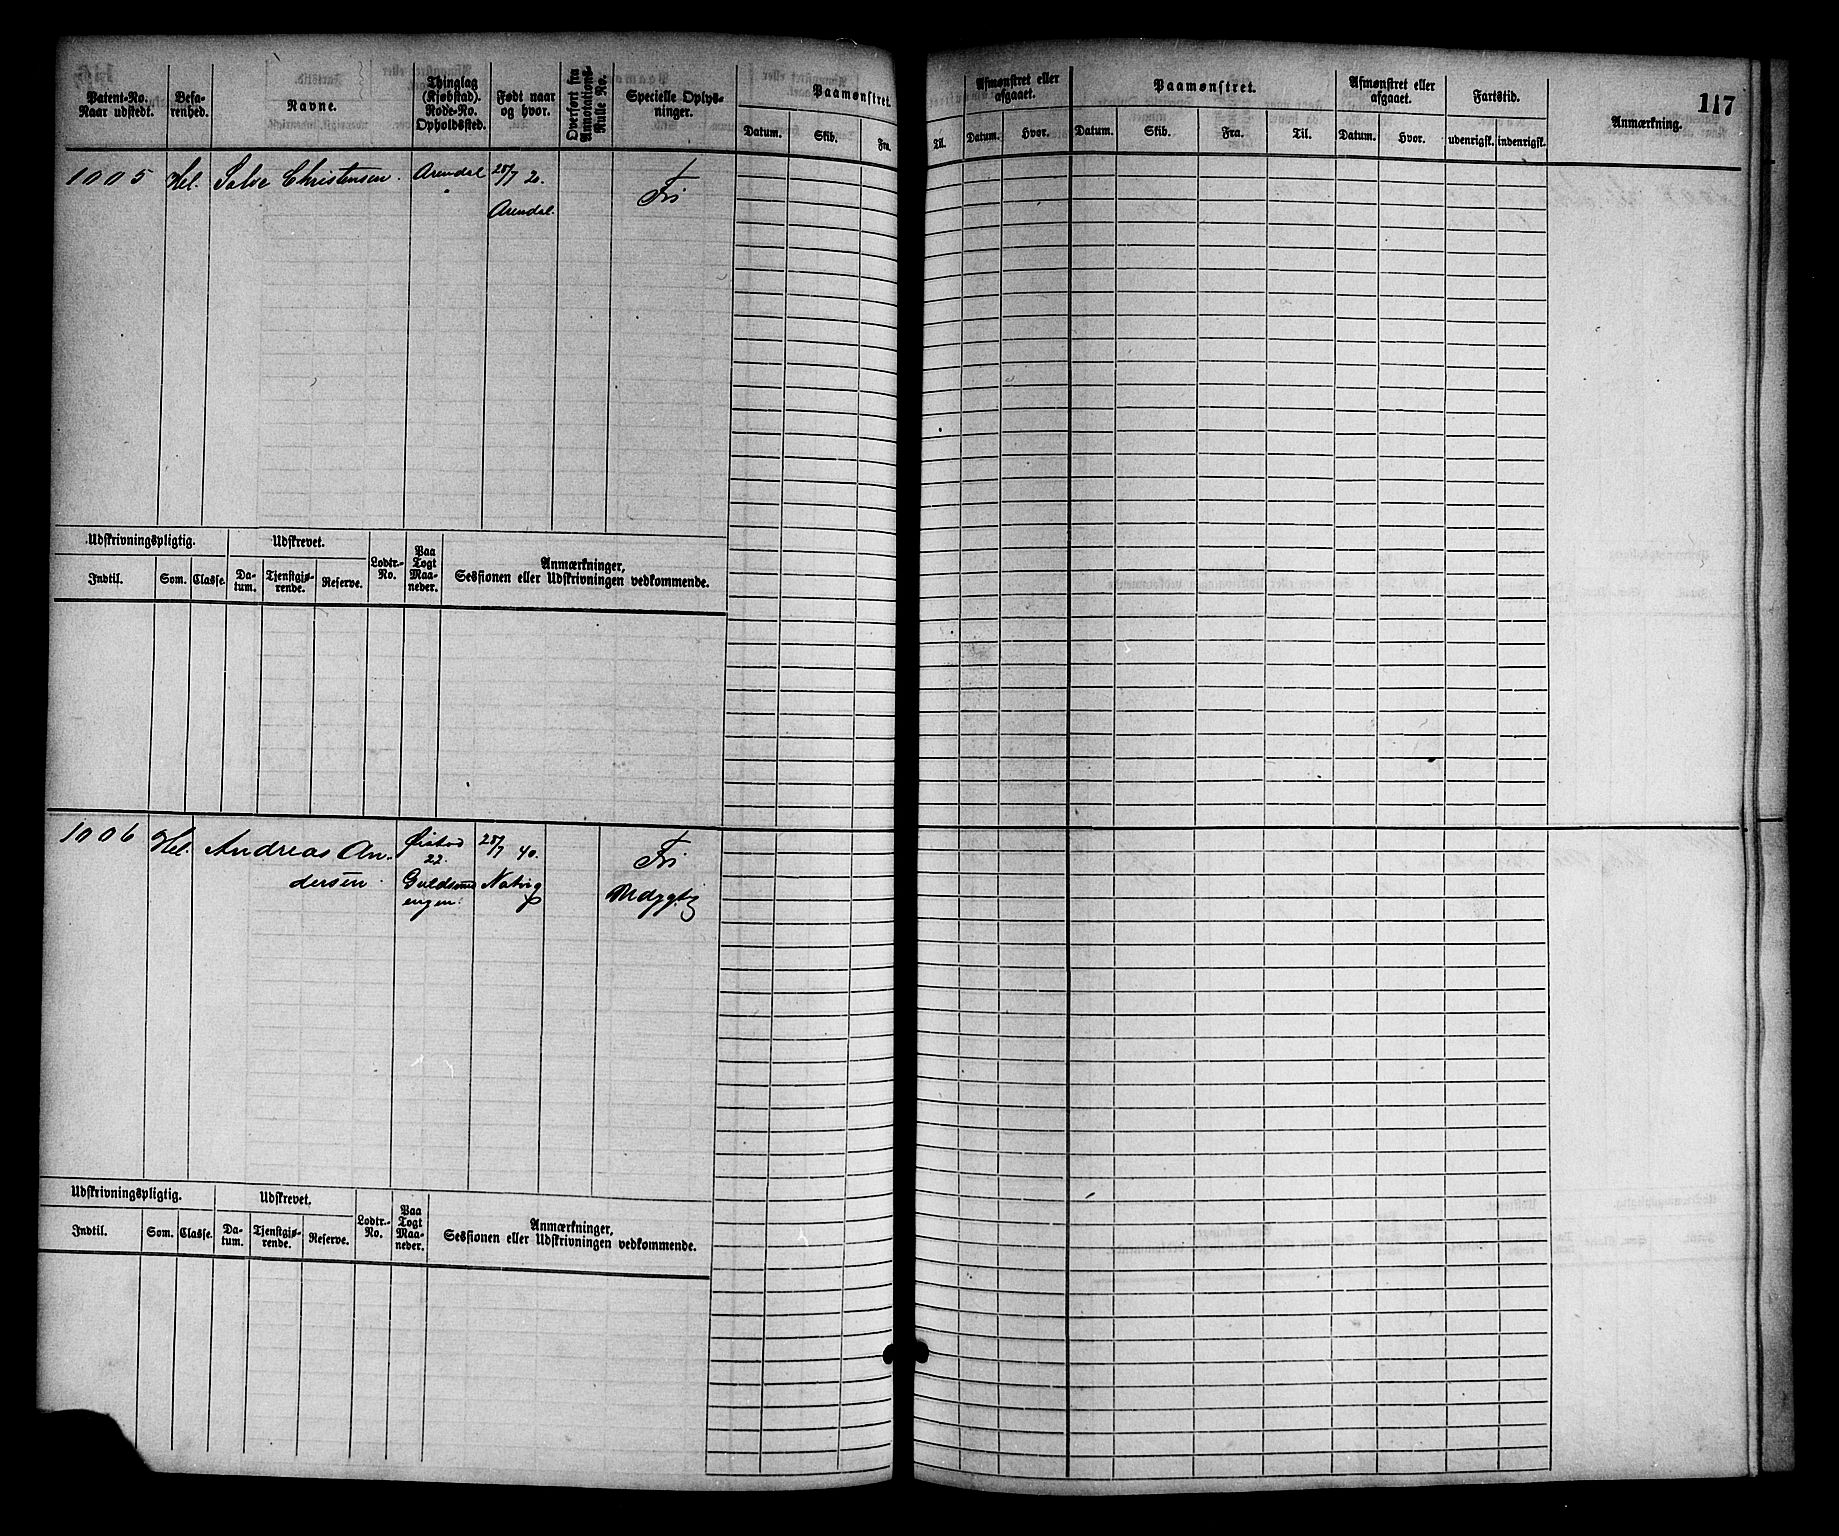 117
Patent-No. Naar udstedt.
Befarenhed.
Navne.
Thinglag (Kjøbstad). Rode-No. Opholdssted.
Født naar og hvor.
Overført fra Annotations-Rulle No.
Specielle Oplysninger.
Paamønstret.
Datum. Skib. Fra. Til.
Afmønstret eller afgaaet.
Datum. Hvor.
Paamønstret.
Datum. Skib. Fra. Til.
Afmønstret eller afgaaet.
Datum. Hvor.
Fartstid.
udenrigsk. indenrigsk.
Anmærkning.
1005 Hel. Salve Christensen. Arendal 28/7 20. Fri
Arendal.
Udskrivningspligtig. Udskrevet. Lodtr.-No. Paa Togt Maaneder. Anmærkninger, Sessionen eller Udskrivningen vedkommende.
Indtil. Som. Classe. Datum. Tjenstgjørende. Reserve.
1006 Hel. Andreas An- Øiestad 28/7 40. Fri
dersen. 22. Natvig
Udskrivningspligtig. Udskrevet. Lodtr.-No. Paa Togt Maaneder. Anmærkninger, Sessionen eller Udskrivningen vedkommende.
Indtil. Som. Classe. Datum. Tjenstgjørende. Reserve.